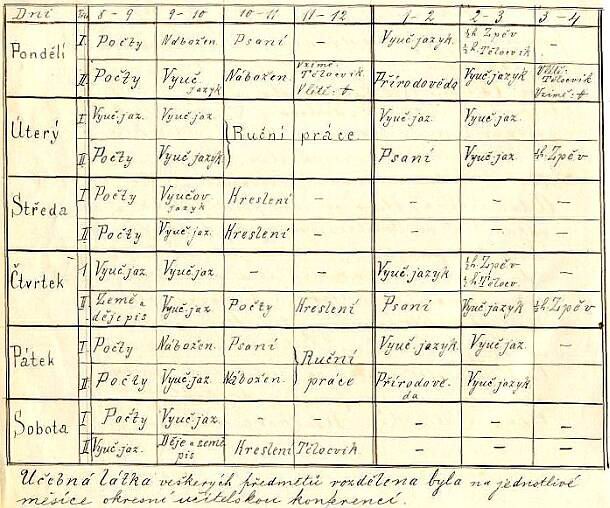 Dni Tříd. 8-9 9-10 10-11 11-12 1-2 2-3 3-4
Pondělí I. Počty Nábožen. Psaní – Vyuč. jazyk. ½h. Zpěv ½h. Tělocvik –
II. Počty Vyuč. jazyk Nábožen. V zimě: Tělocvik V létě: + Přírodověda Vyuč. jazyk V létě: Tělocvik V zimě: +
Úterý I. Vyuč. jaz. Vyuč. jaz Ruční práce. Vyuč. jaz. Vyuč. jaz.
II. Počty Vyuč. jazyk Psaní Vyuč. jaz. ½h. Zpěv
Středa I. Počty Vyučov. jazyk Kreslení – – – –
II. Počty Vyuč. jaz. Kreslení – – – –
Čtvrtek I Vyuč. jaz. Vyuč. jaz. – – Vyuč. jazyk ½h. Zpěv ½h. Tělocv. –
II Země a dějepis Vyuč. jaz. Počty Kreslení Psaní Vyuč. jazyk ½h. Zpěv
Pátek I. Počty Nábožen. Psaní Ruční práce Vyuč. jazyk. Vyuč. jaz. –
II. Počty Vyuč. jaz. Nábožen. Přírodověda Vyuč. jazyk
Sobota I Počty Vyuč. jaz. – – – – –
II Vyuč. jaz. Děje a země pis Kreslení Tělocvik – – –
Učebná látka veškerých předmětů rozdělena byla na jednotlivé
měsíce okresní učitelskou konferencí.